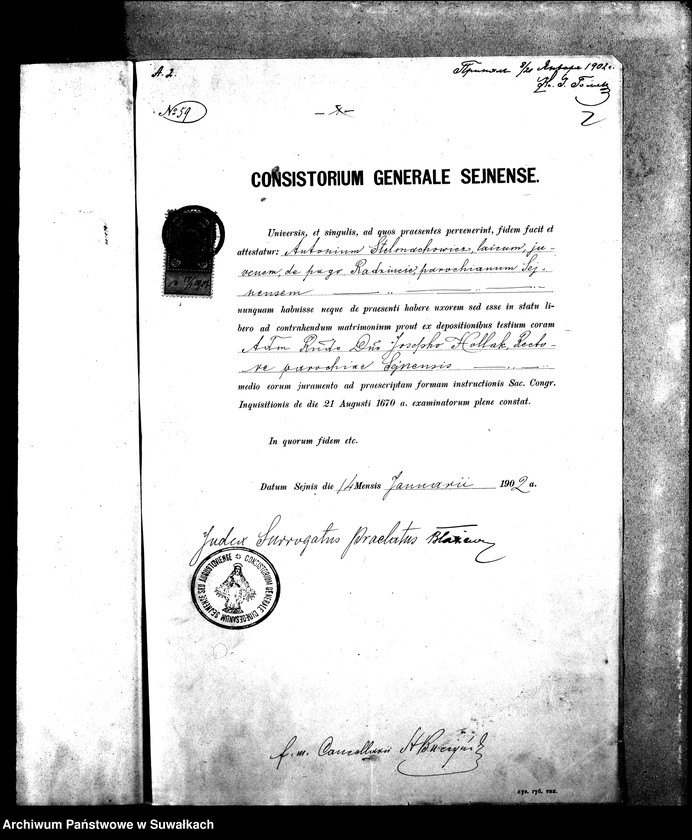 A. 2.
9/21 Января 1902 г.
№ 59
2
CONSISTORIUM GENERALE SEJNENSE.
Universis, et singulis, ad quos praesentes pervenerint, fidem facit et
attestatur: Antonium Stelmachowicz, laicum, ju-
venem, de pago Radziucie, parochianum Sej-
nensem
nunquam habuisse neque de praesenti habere uxorem sed esse in statu li-
bero ad contrahendum matrimonium prout ex depositionibus testium coram
Adm Rndo Dno Josepho Hollak, Recto-
re parochiae Sejnensis
medio eorum juramento ad praescriptam formam instructionis Sac. Congr.
Inquisitionis de die 21 Augusti 1670 a. examinatorum plene constat.
In quorum fidem etc.
Datum Sejnis die 14 Mensis Januarii 1902 a.
Judex Surrogatus Praelatus
CONSISTORIUM GENERALE DIOECESANUM SEJNENSE SEU AUGUSTOVIENSE
f. m. Cancellarii
Archiwum Państwowe w Suwałkach